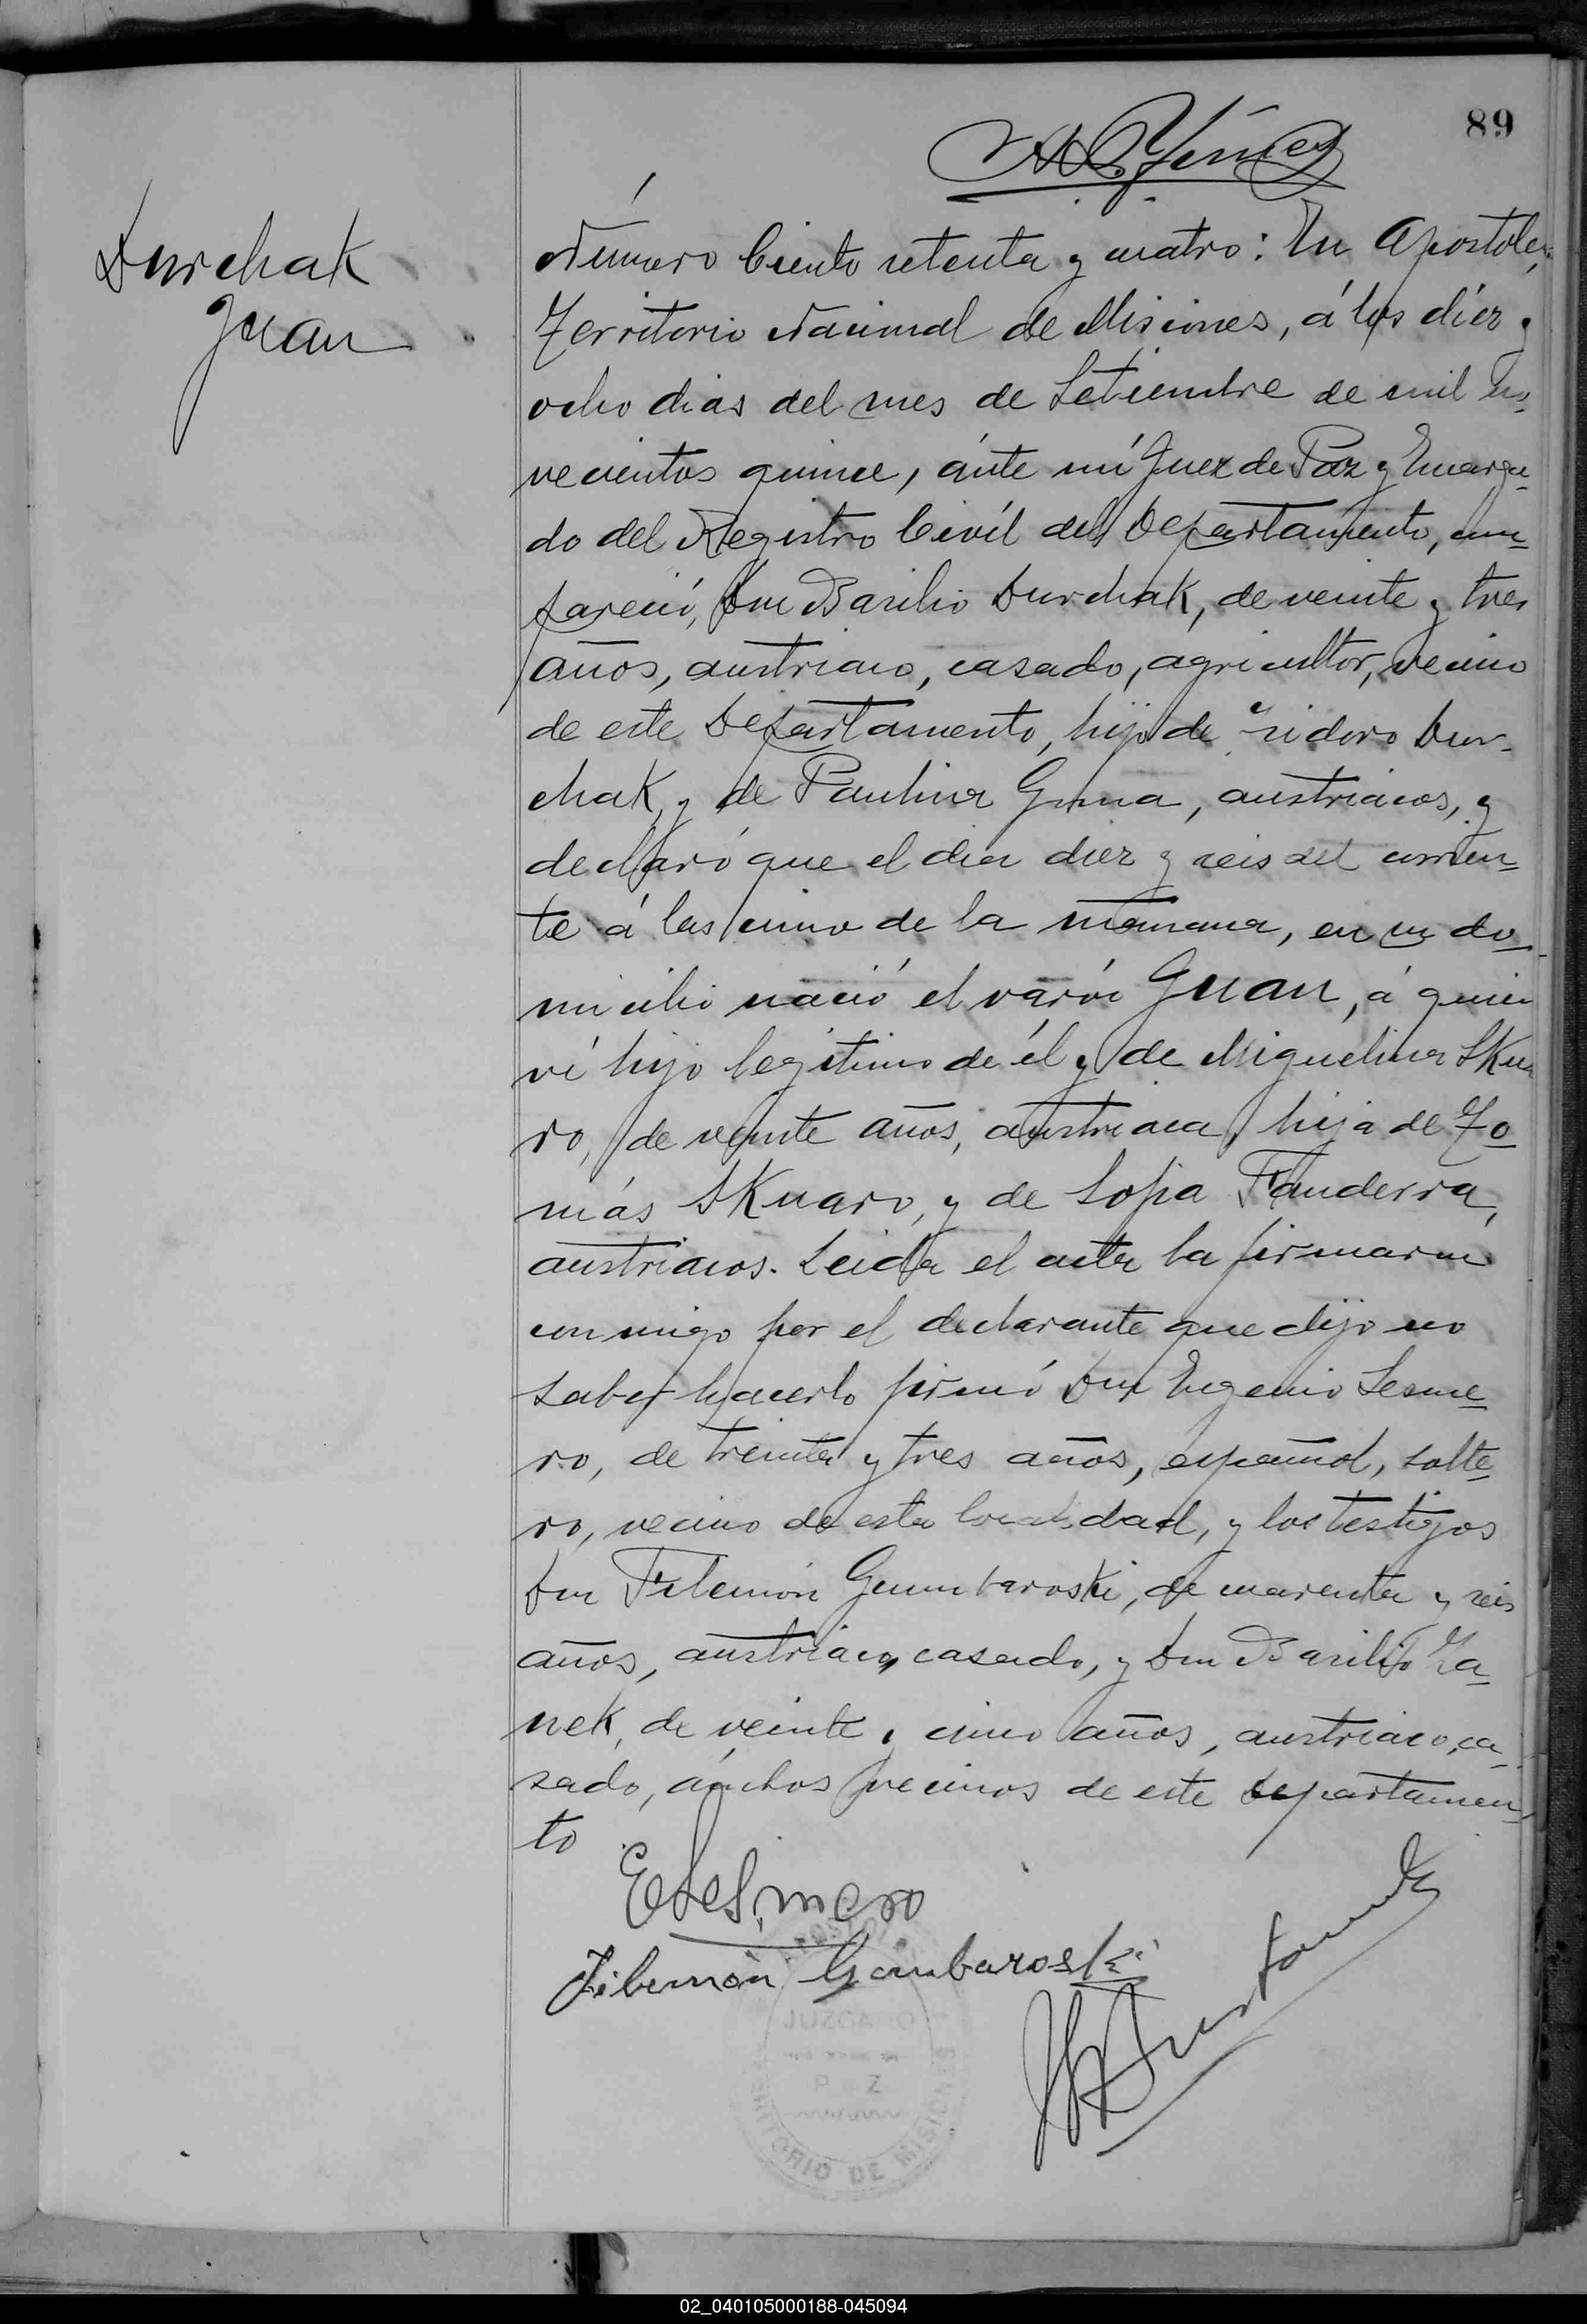 89
Durchak
Juan
Número Ciento setenta y cuatro: En Apostoles,
Territorio Nacional de Misiones, á los diéz y
ocho dias del mes de Setiembre de mil no-
vecientos quince, ánte mí Juez de Paz y Encarga-
do del Registro Civíl del Departamento, com-
pareció, Don Basilio Durchak, de veinte y tres
años, austriaco, casado, agricultor, vecino
de este Departamento, hijo de Isidoro Dur-
chak, y de Paulina Guna, austriacos, y
declaró que el dia diez y seis del corrien-
te á las cinco de la mañana, en su do-
micilio nació el varón Juan, á quien
ví hijo legítimo de él y de Miguelina Skua
ro, de veinte años, austriaca, hija de To-
más Skuaro, y de Sofia Fanderra,
austriacos. Leida el acta la firmaron
conmigo por el declarante que dijo no
saber hacerlo firmó Don Eugenio Lesme-
ro, de treinta y tres años, español, solte-
ro, vecino de esta localidad, y los testigos
Don Filemón Gumbaroski, de cuarenta y seis
años, austriaco, casado, y Don Basilio
nek, de veinte y cinco años, austriaco, ca-
sado, ámbos vecinos de este departamen-
to
E Lesmero
Filemon Gambaroski
JUZGADO
PAZ
TERRITORIO DE MISIONES
02_040105000188-045094